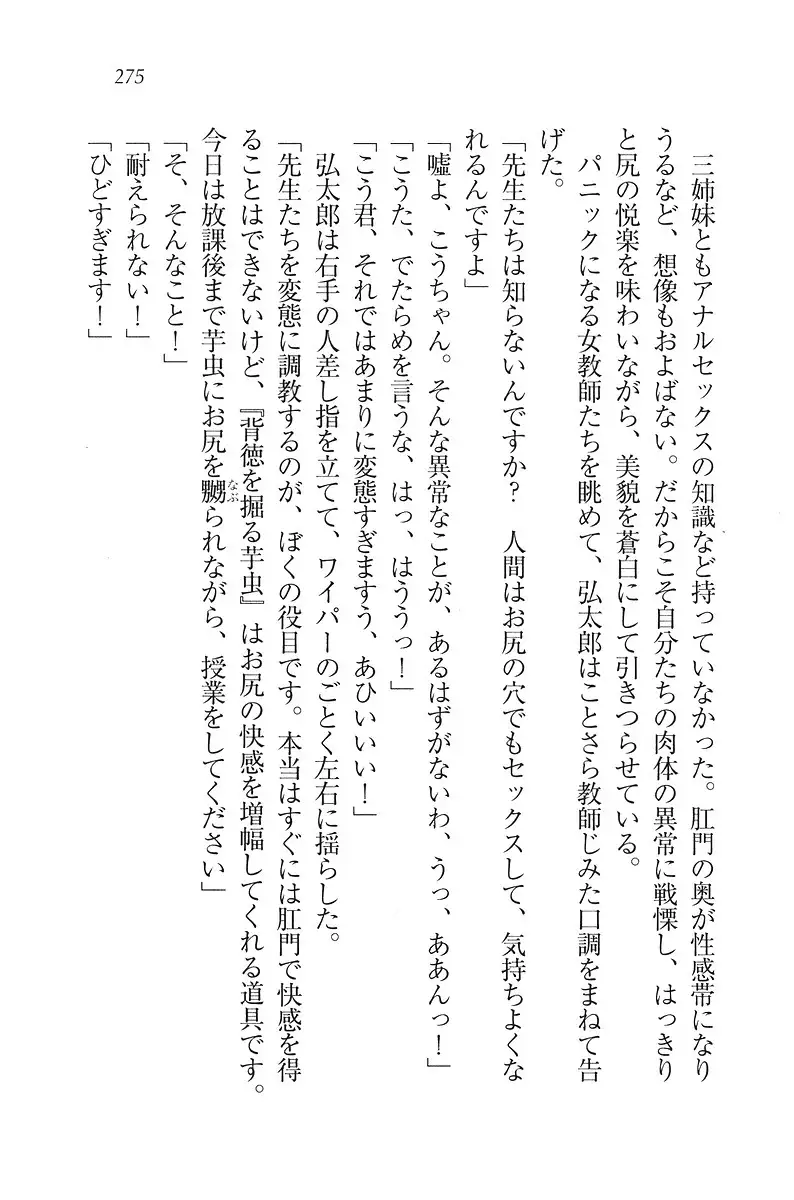 275
三姉妹ともアナルセックスの知識など持っていなかった。肛門の奥が性感帯になり
うるなど、想像もおよばない。だからこそ自分たちの肉体の異常に戦慄し、はっきり
と尻の悦楽を味わいながら、美貌を蒼白にして引きつらせている。
パニックになる女教師たちを眺めて、弘太郎はことさら教師じみた口調をまねて告
げた。
「先生たちは知らないんですか？　人間はお尻の穴でもセックスして、気持ちよくな
れるんですよ」
「嘘よ、こうちゃん。そんな異常なことが、あるはずがないわ、うっ、ああんっ！」
「こうた、でたらめを言うな、はっ、はううっ！」
「こう君、それではあまりに変態すぎますう、あひいいい！」
弘太郎は右手の人差し指を立てて、ワイパーのごとく左右に揺らした。
「先生たちを変態に調教するのが、ぼくの役目です。本当はすぐには肛門で快感を得
ることはできないけど、『背徳を掘る芋虫』はお尻の快感を増幅してくれる道具です。
今日は放課後まで芋虫にお尻を嬲なぶられながら、授業をしてください」
「そ、そんなこと！」
「耐えられない！」
「ひどすぎます！」